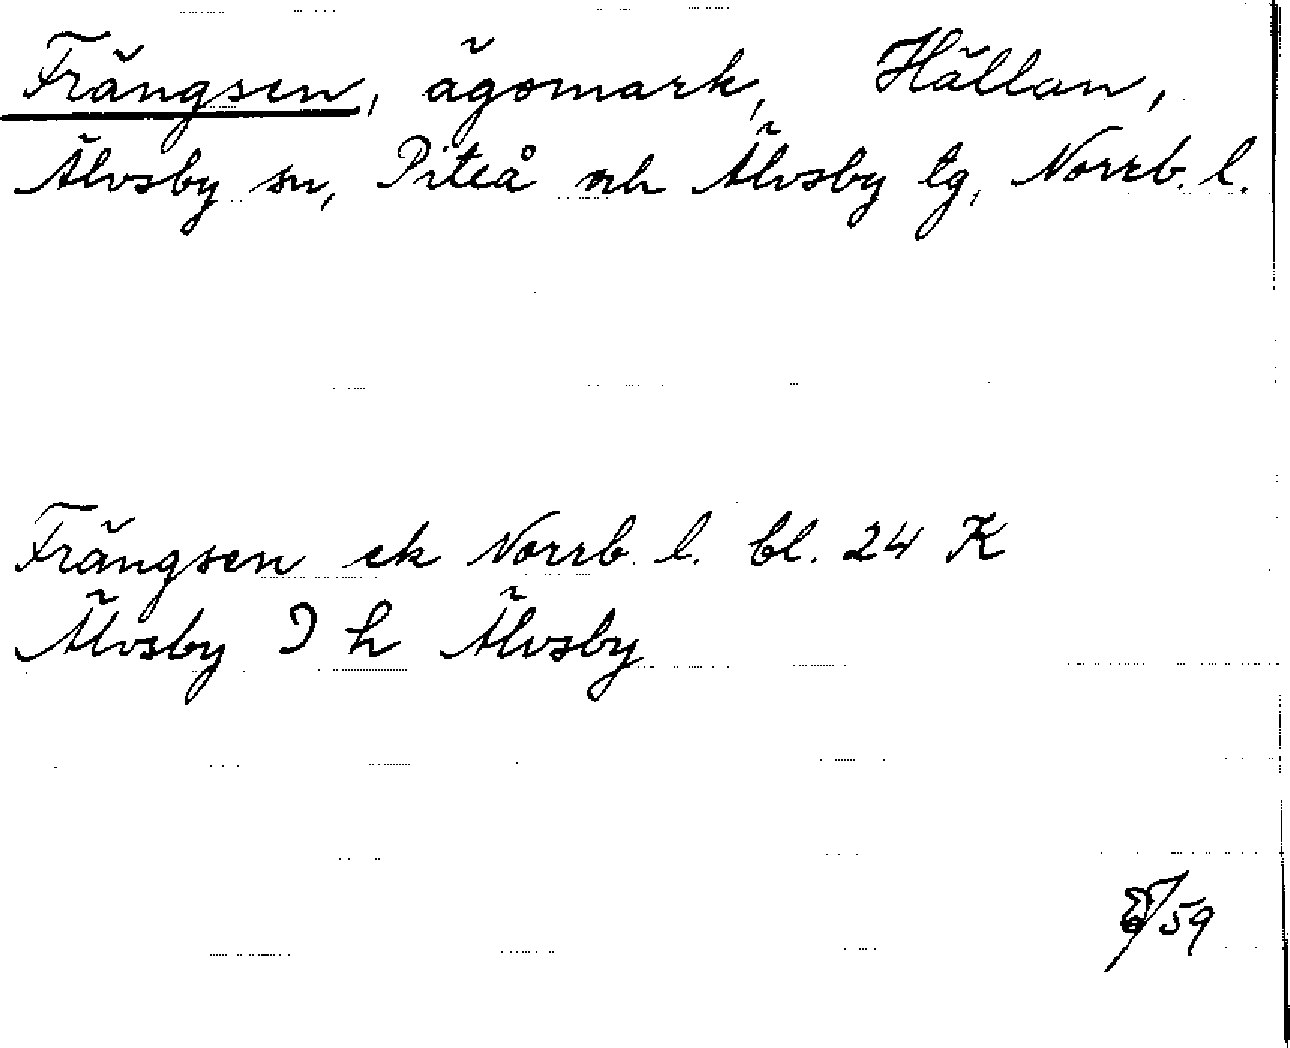 Frängsen, ägomark, Hällan,
Älvsby sn, Piteå och Älvsby tg, Norrb. l.
Frängsen ek Norrb. l. bl. 24 K
Älvsby I h Älvsby
59